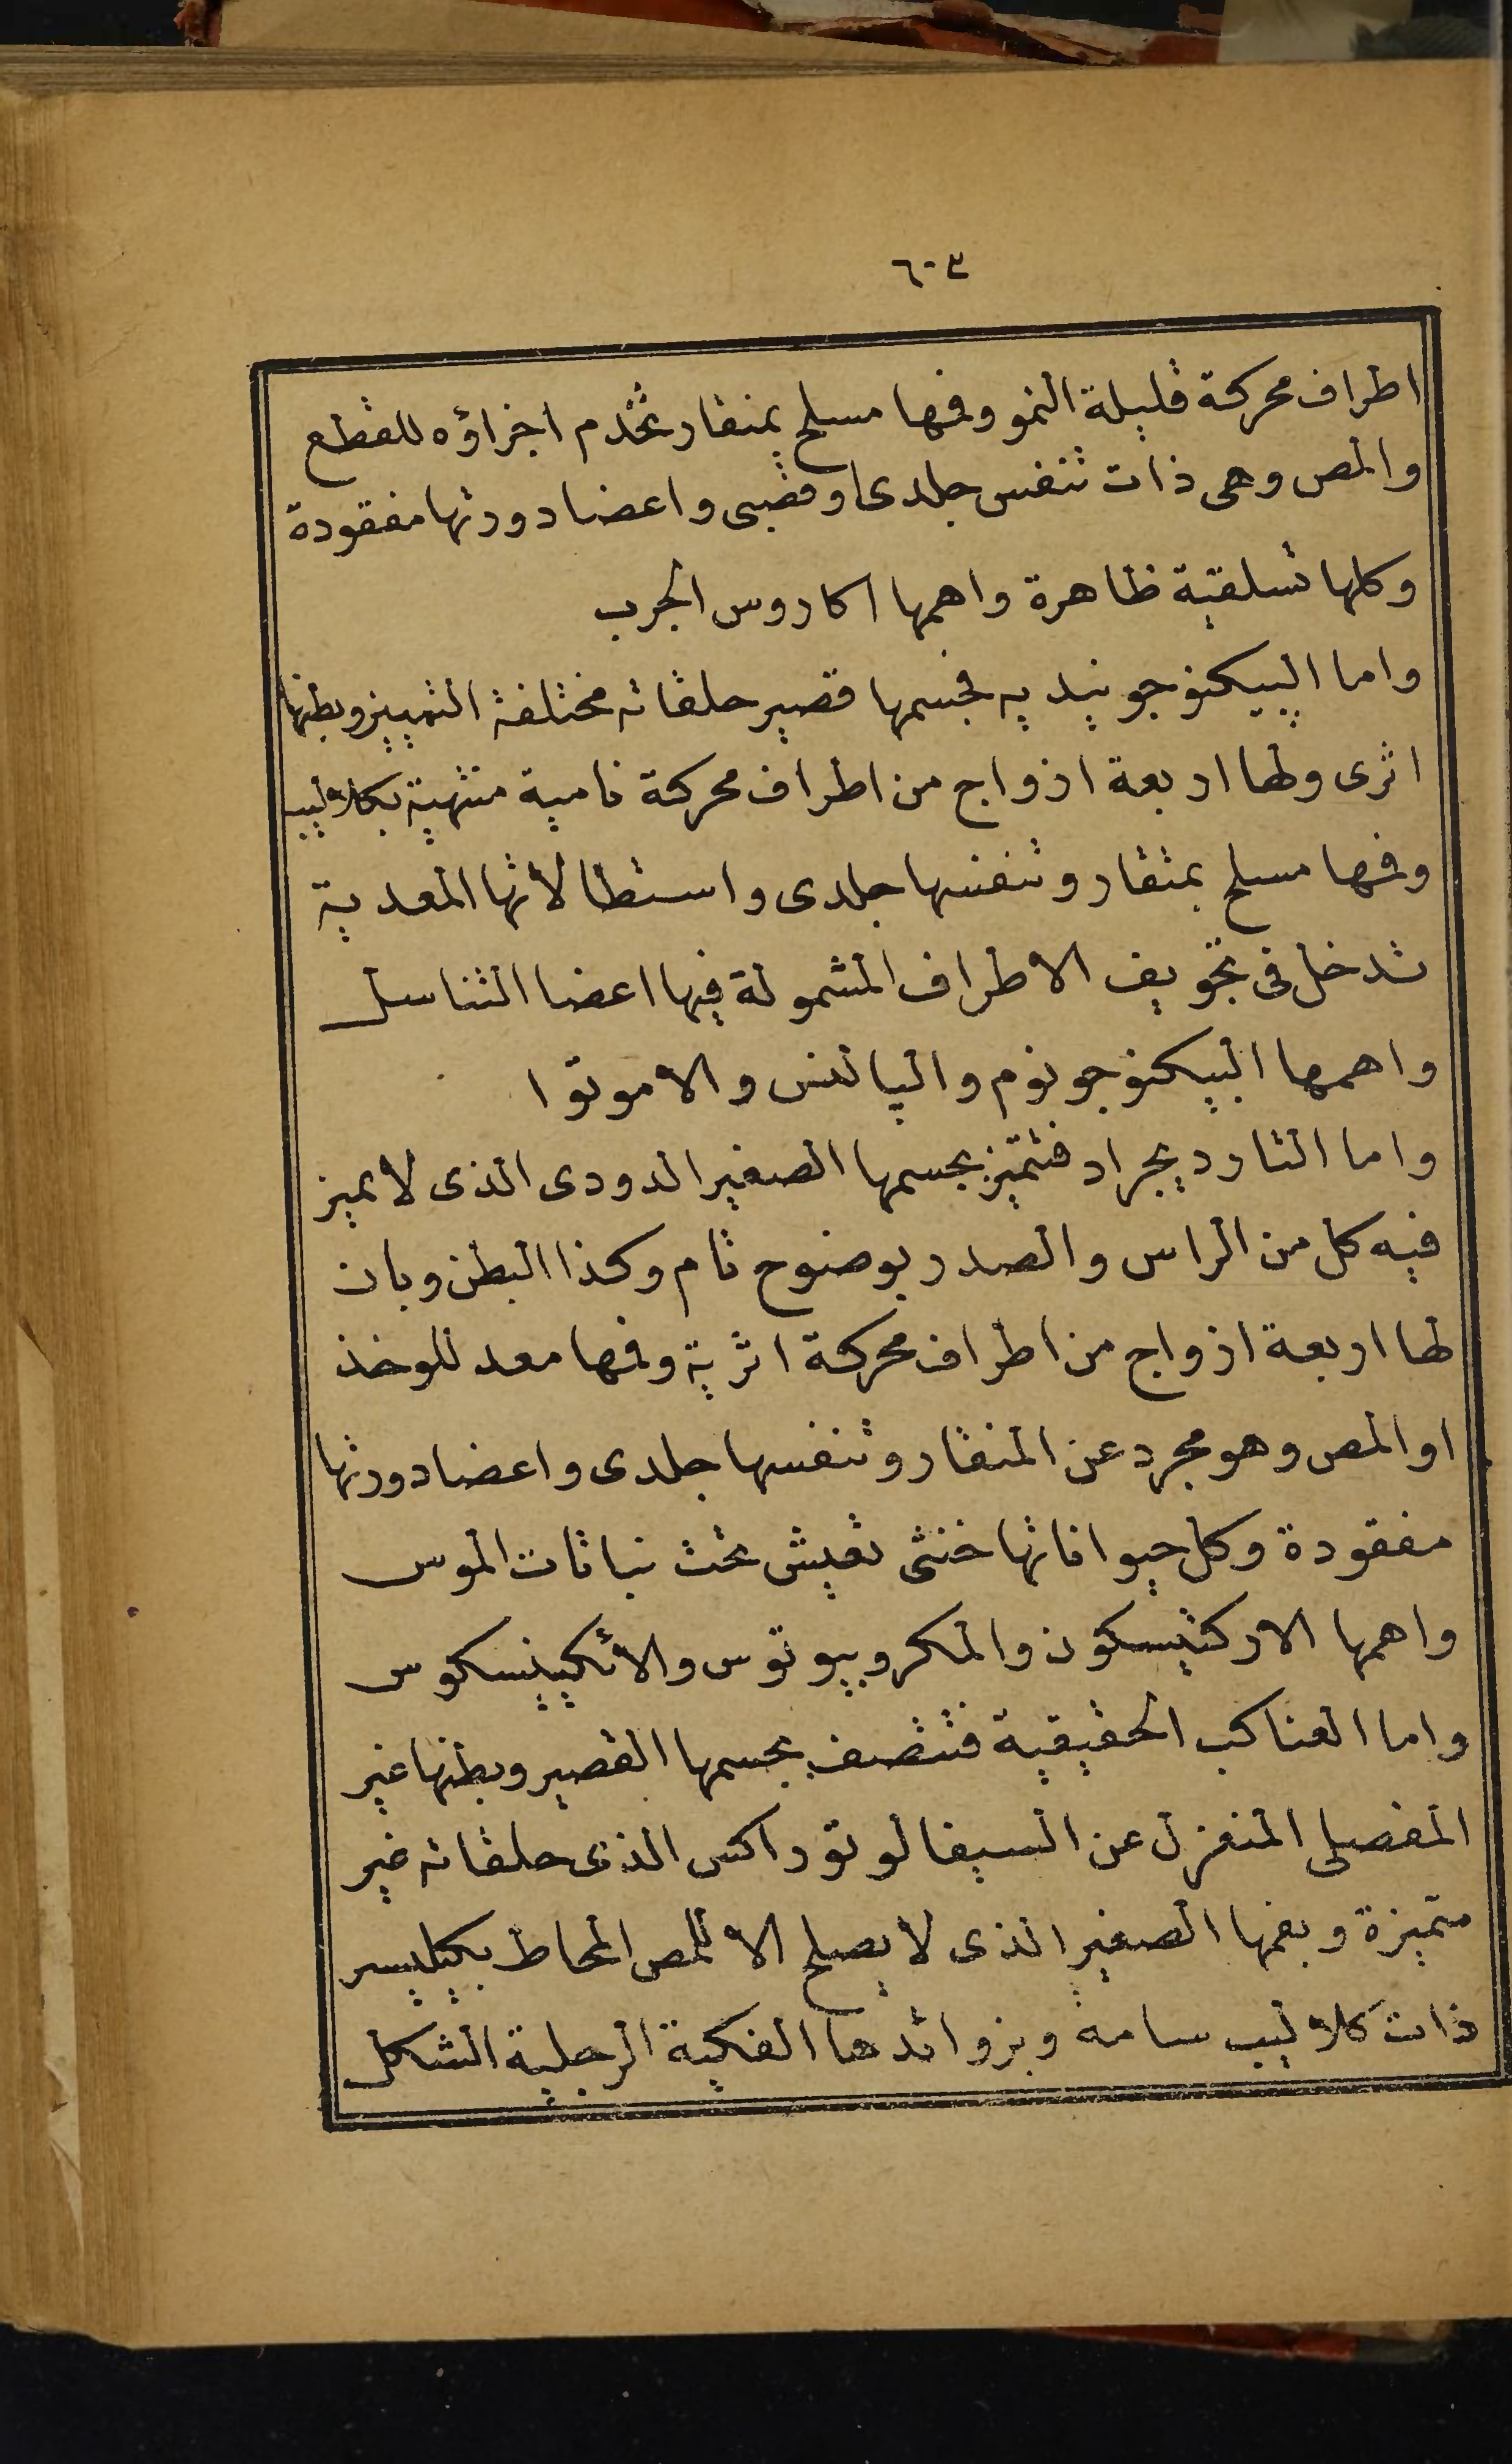 ٦٠٣
اطراف محركة قليلة النمو وفمها مسلح بمنقار تخدم اجزاؤه للقطع
والمص وهى ذات تنفس جلدى او قصبى واعضا دورتها مفقودة
وكلها تسلقية ظاهرة واهمها اكاروس الجرب
واما البيكنوجونيديه فجسمها قصير حلقاته مختلفة التمييز وبطنها
اثرى ولها اربعة ازواج من اطراف محركة نامية منتهية بكلاليب
وفمها مسلح بمنقار وتنفسها جلدى واستطالاتها المعدية
تدخل فى تجويف الاطراف المشمولة فيها اعضا التناسل
واهمها البيكنوجونوم والياللنس والاموتوا
واما التارديجراد فتتميز بجسمها الصغير الدودى الذى لا يميز
فيه كل من الراس والصدر بوضوح تام وكذا البطن وبان
لها اربعة ازواج من اطراف محركة اثرية وفمها معد للوخذ
او المص وهو مجرد عن المنقار وتنفسها جلدى واعضا دورتها
مفقودة وكل حيواناتها خنثى تعيش تحت نباتات الموس
واهمها الاركتيسكون والمكروبيوتوس والائكيينسكوس
واما العناكب الحقيقية فتتصف بجسمها القصير وبطنها غير
المفصلى المنعزل عن السيفالوتوراكس الذى حلقاته غير
متميزة وبفمها الصغير الذى لا يصلح الا للمص المحاط بكيليسر
ذات كلاليب سامة وبزوائدها الفكية الرجلية الشكل